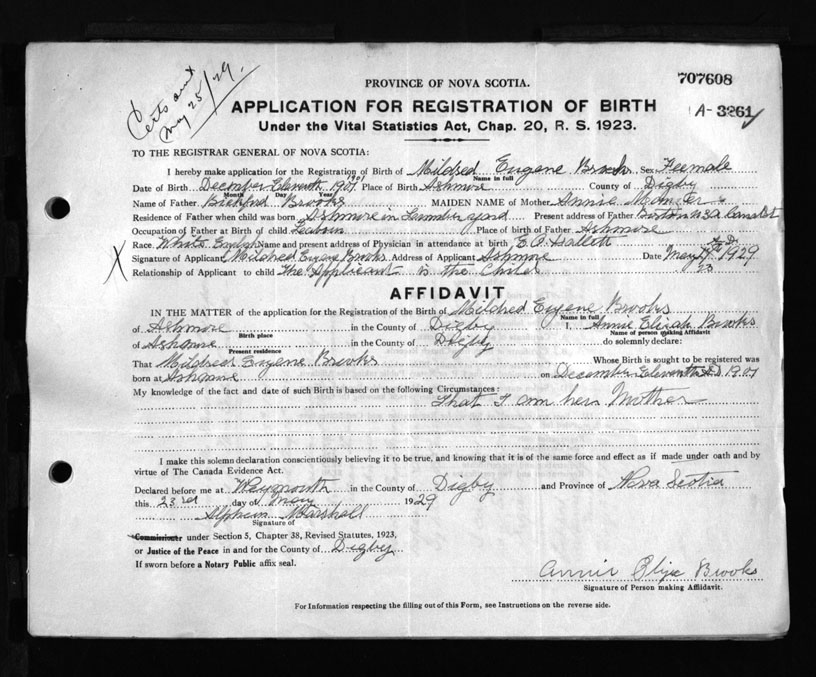 Certs and
May 25/29.
707608
PROVINCE OF NOVA SCOTIA.
A-3261
APPLICATION FOR REGISTRATION OF BIRTH
Under the Vital Statistics Act, Chap. 20, R. S. 1923.
TO THE REGISTRAR GENERAL OF NOVA SCOTIA:
I hereby make application for the Registration of Birth of Mildred Eugene Brooks Sex Feemale
Name in full
Date of Birth December Eleventh 1907 Place of Birth Ashmore County of Digby
Month Day Year
Name of Father Brooks MAIDEN NAME of Mother Annie
Residence of Father when child was born Ashmore in Lumber yard Present address of Father Boston USA
Occupation of Father at Birth of Child Place of birth of Father Ashmore
Race. White Name and present address of Physician in attendance at birth E. O. Hallett
Signature of Applicant Mildred Eugene Brooks Address of Applicant Ashmore Date May 1929
23
X Relationship of Applicant to child The Applicant is the Child
AFFIDAVIT
IN THE MATTER of the application for the Registration of the Birth of Mildred Eugene Brooks
Name in full
of Ashmore in the County of Digby I, Annie Elizah Brooks
Birth place Name of person making Affidavit
of Ashmore in the County of Digby do solemnly declare:
Present residence
That Mildred Eugene Brooks Whose Birth is sought to be registered was
born at Ashmore on December Eleventh AD 1907
My knowledge of the fact and date of such Birth is based on the following Circumstances:
That I am her Mother
I make this solemn declaration conscientiously believing it to be true, and knowing that it is of the same force and effect as if made under oath and by
virtue of The Canada Evidence Act.
Declared before me at Weymouth in the County of Digby and Province of Nova Scotia
this 23rd day of May 1929
Marshall
Signature of
Commissioner under Section 5, Chapter 38, Revised Statutes, 1923,
or Justice of the Peace in and for the County of Digby
If sworn before a Notary Public affix seal.
Annie Elija Brooks
Signature of Person making Affidavit.
For Information respecting the filling out of this Form, see Instructions on the reverse side.